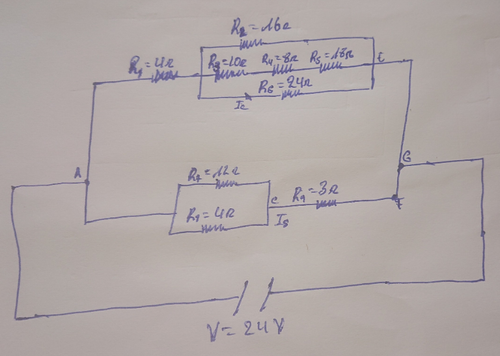 R₂=16Ω
R₁=4Ω R₃=10Ω R₄=8Ω R₅=18Ω E
R₆=24Ω
I₂
A
G
R₇=12Ω
R₉=3Ω
C
F
I₅
V=24V